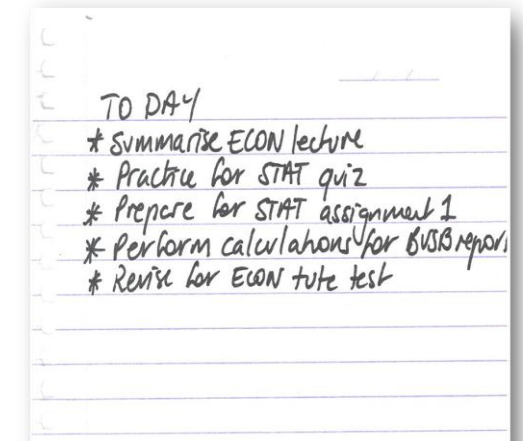 TO DAY
* Summarise ECON lecture
* Practice for STAT quiz
* Prepare for STAT assignment 1
* Perform calculations for BUSB report
* Revise for ECON tute test